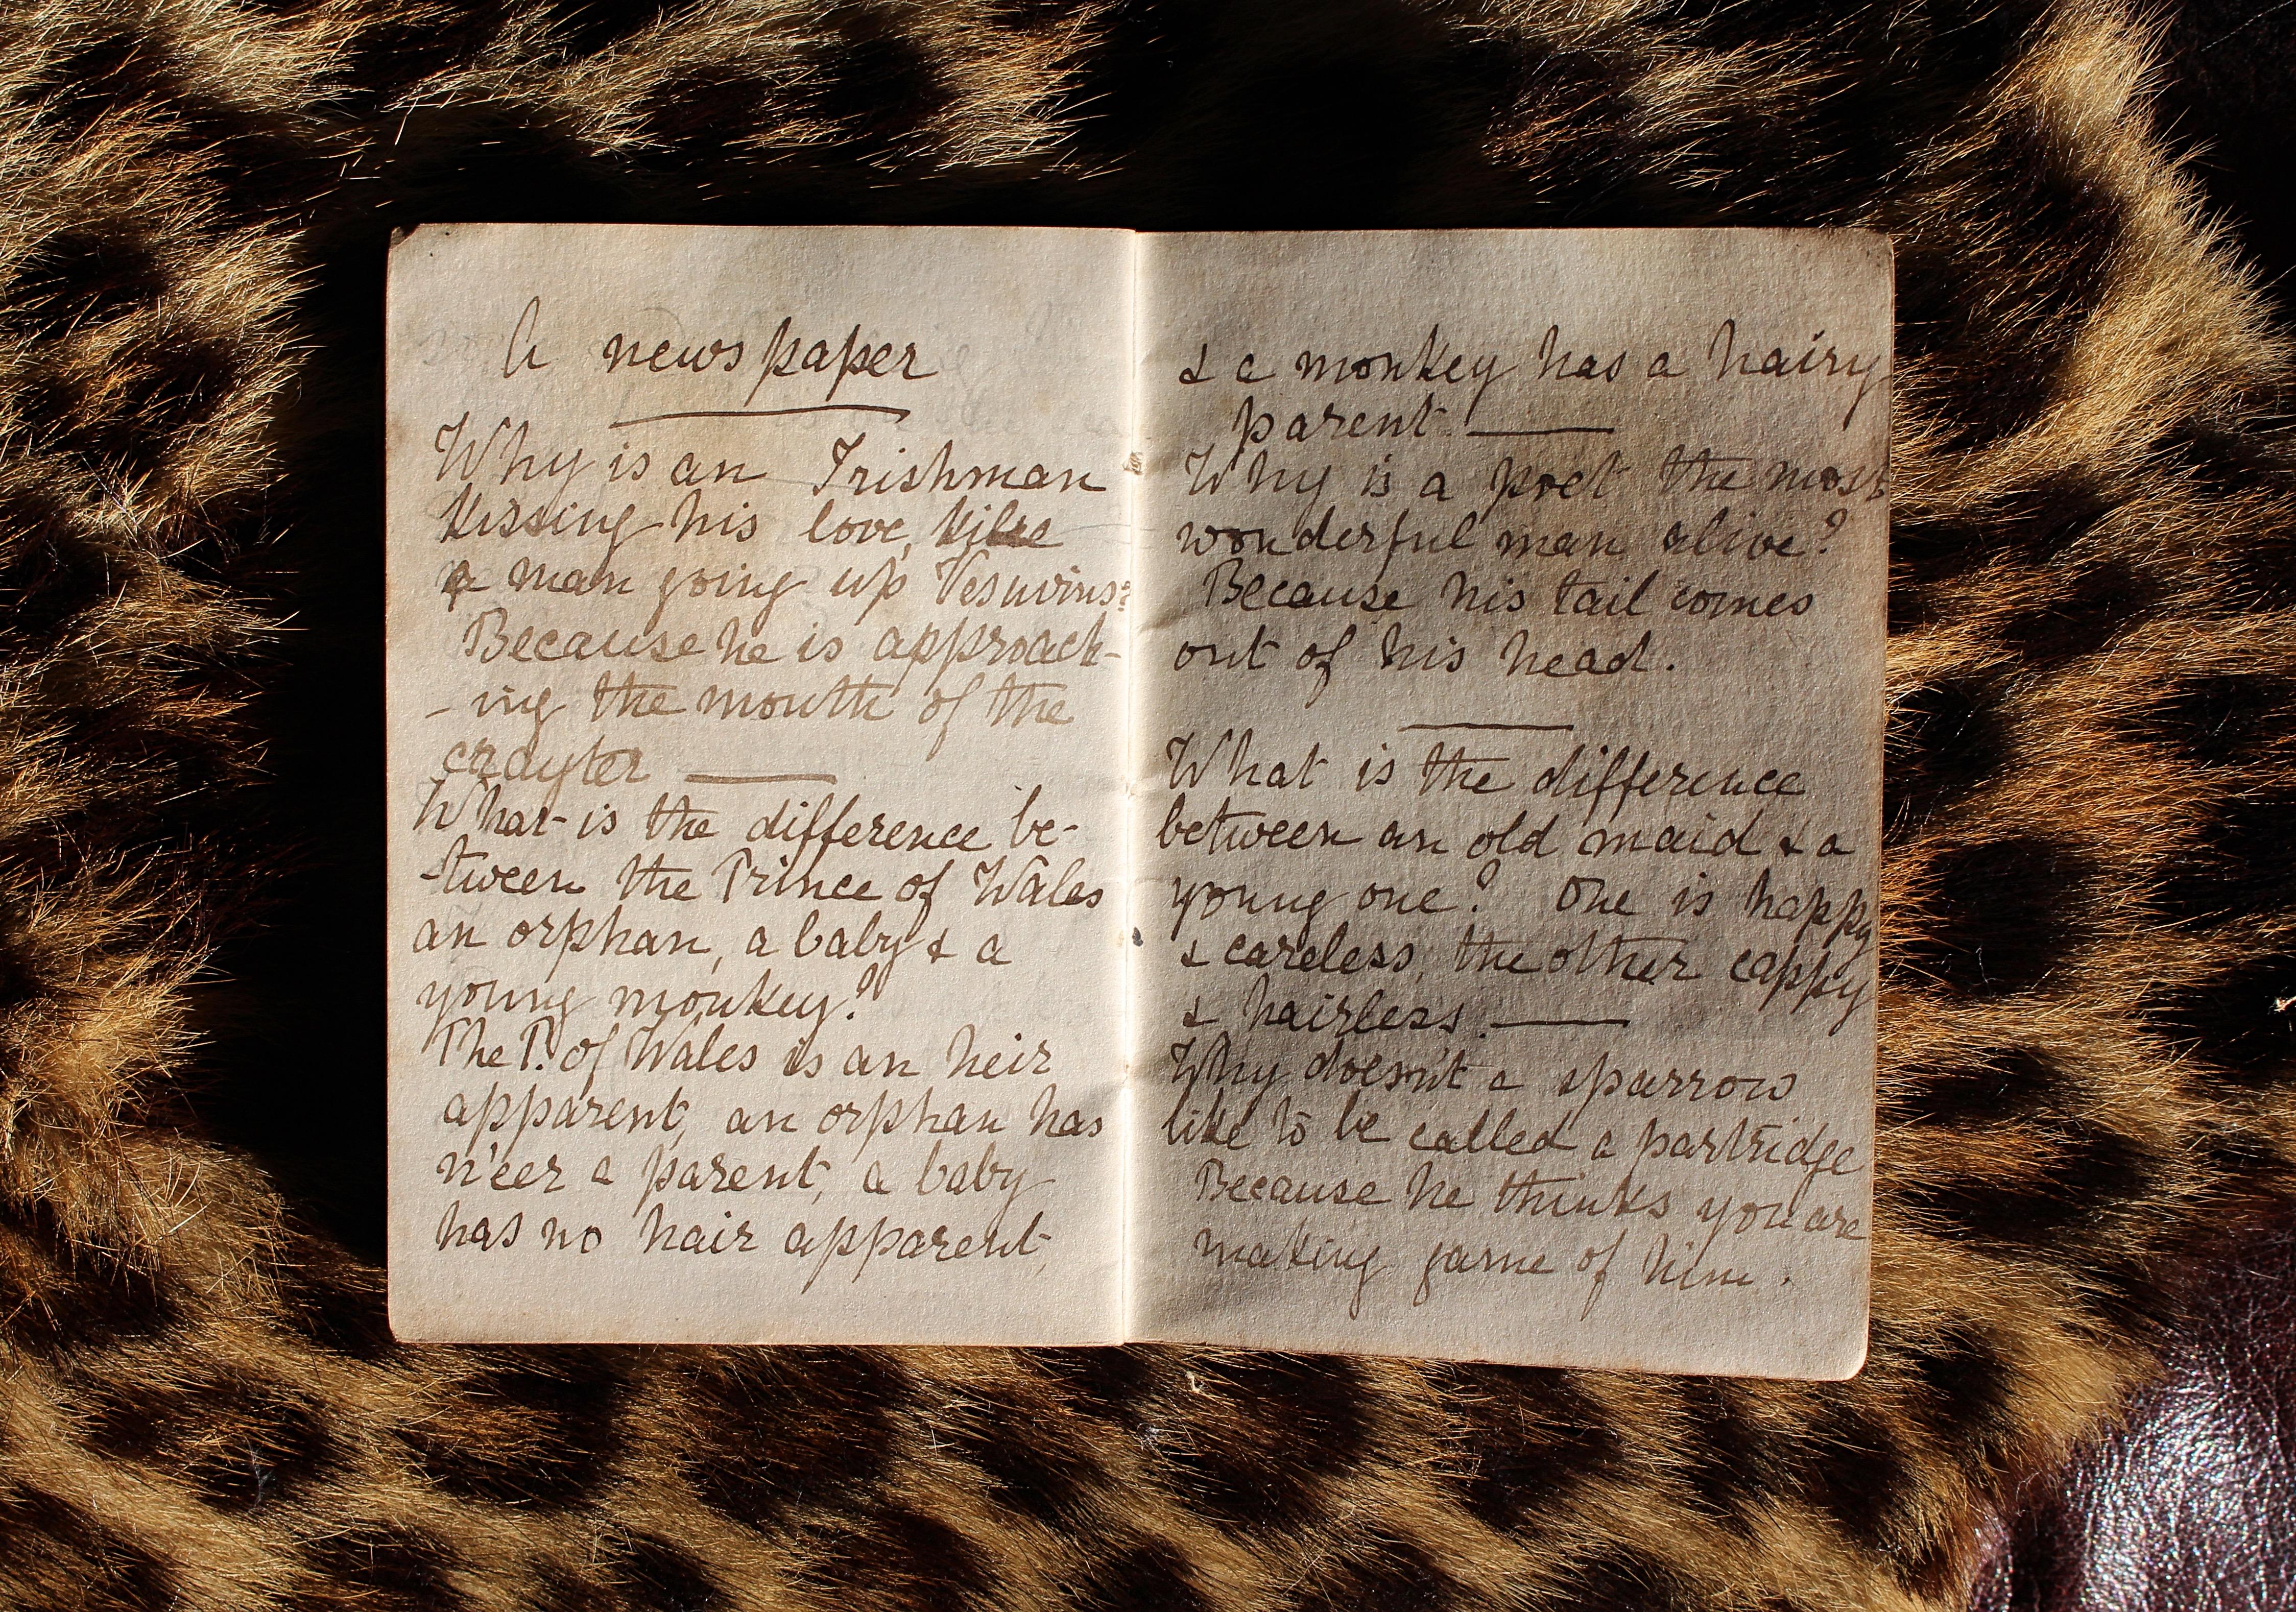 A newspaper
Why is an Irishman
kissing his love, like
a man going up Vesuvius?
Because he is approach-
-ing the mouth of the
crayter
What is the difference be-
-tween the Prince of Wales
an orphan, a baby & a
young monkey?
The P. of Wales is an heir
apparent, an orphan has
n'eer a parent, a baby
has no hair apparent,
& a monkey has a hairy
parent.
Why is a poet the most
wonderful man alive?
Because his tail comes
out of his head.
What is the difference
between an old maid & a
young one? One is happy
& careless, the other cappy
& hairless.
Why doesn't a sparrow
like to be called a partridge
Because he thinks you are
making game of him.